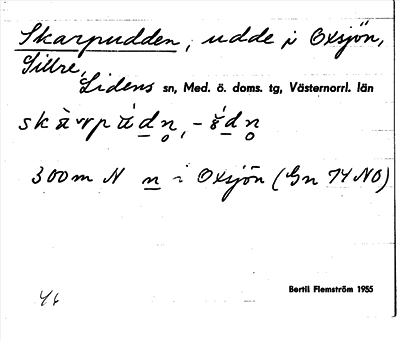 Skarpudden, udde i Oxsjön,
Gillre,
Lidens sn, Med. ö. doms. tg, Västernorrl. län
300 m N n i Oxsjön (Gn 74 NO)
Bertil Flemström 1955